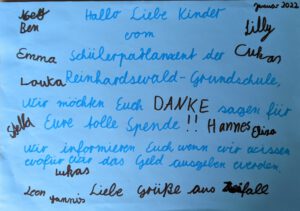 Januar 2022
Hallo Liebe Kinder
Ben
vom
Lilly
Emma
Schülerparlament der
Lukas
Louka
Reinhardswald-Grundschule,
wir möchten Euch DANKE sagen für
Stella
Eure tolle Spende!!
Hannes
Elisa
wir informieren Euch wenn wir wissen
wofür wir das Geld ausgeben werden.
Lukas
Leon
Yannis
Liebe Grüße aus